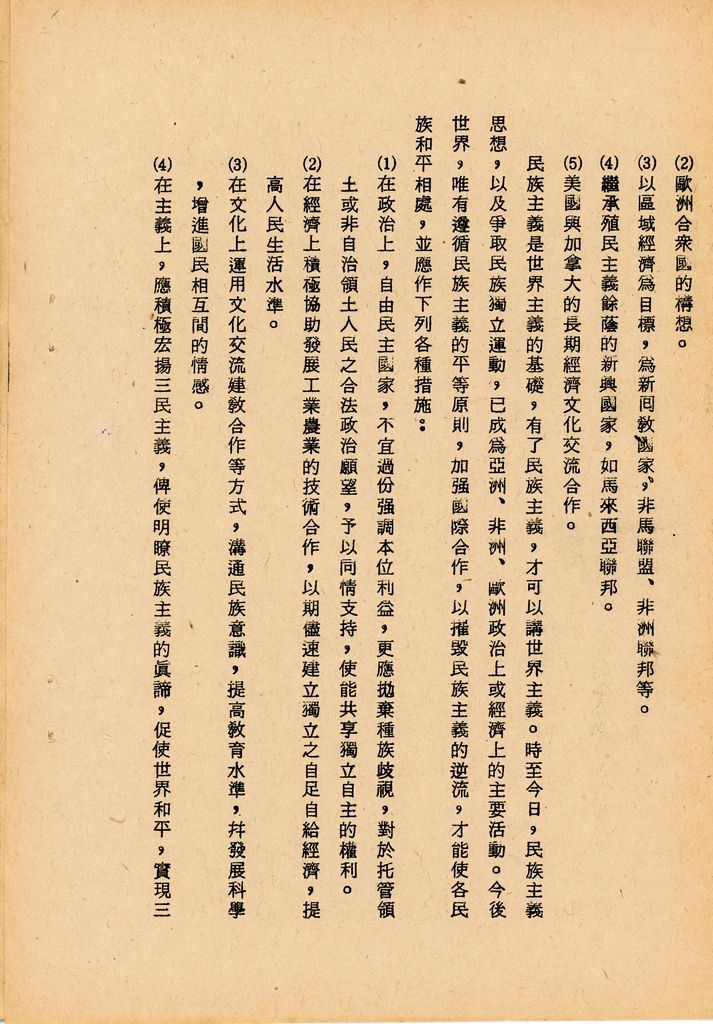 (2)歐洲合衆國的構想。
(3)以區域經濟爲目標，爲新囘敎國家、非馬聯盟、非洲聯邦等。
(4)繼承殖民主義餘蔭的新興國家，如馬來西亞聯邦。
(5)美國與加拿大的長期經濟文化交流合作。
民族主義是世界主義的基礎，有了民族主義，才可以講世界主義。時至今日，民族主義
思想，以及爭取民族獨立運動，已成爲亞洲、非洲、歐洲政治上或經濟上的主要活動。今後
世界，唯有遵循民族主義的平等原則，加强國際合作，以摧毀民族主義的逆流，才能使各民
族和平相處，並應作下列各種措施：
(1)在政治上，自由民主國家，不宜過份强調本位利益，更應拋棄種族歧視，對於托管領
土或非自治領土人民之合法政治願望，予以同情支持，使能共享獨立自主的權利。
(2)在經濟上積極協助發展工業農業的技術合作，以期儘速建立獨立之自足自給經濟，提
高人民生活水準。
(3)在文化上運用文化交流建敎合作等方式，溝通民族意識，提高敎育水準，幷發展科學
，增進國民相互間的情感。
(4)在主義上，應積極宏揚三民主義，俾使明瞭民族主義的眞諦，促使世界和平，實現三